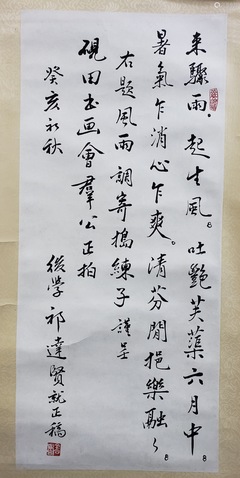 來驟雨。起生風。吐艷芙蕖六月中。
暑氣乍消心乍爽。清芬閒挹樂融〻。
右題風雨調寄搗練子謹呈
硯田書画會羣公正拍
癸亥初秋
後學祁達賢就正稿